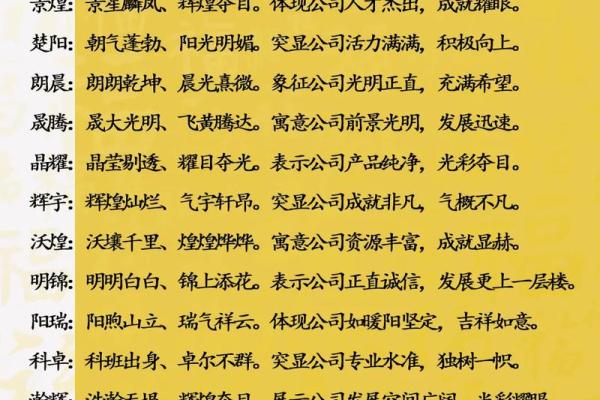 景煌：景星麟凤、辉煌夺目。体现公司人才杰出，成就耀眼。
楚阳：朝气蓬勃、阳光明媚。突显公司活力满满，积极向上。
朗晨：朗朗乾坤、晨光熹微。象征公司光明正直，充满希望。
晟腾：晟大光明、飞黄腾达。寓意公司前景光明，发展迅速。
晶耀：晶莹剔透、耀目夺光。表示公司产品纯净，光彩夺目。
辉宇：辉煌灿烂、气宇轩昂。突显公司成就非凡，气概不凡。
沃煌：沃壤千里、煌煌烨烨。寓意公司资源丰富，成就显赫。
明锦：明明白白、锦上添花。表示公司正直诚信，发展更上一层楼。
阳瑞：阳煦山立、瑞气祥云。体现公司如暖阳坚定，吉祥如意。
科卓：科班出身、卓尔不群。突显公司专业水准，独树一帜。
瀚辉：浩瀚无垠、辉煌夺目。展示公司发展空间广阔，光彩耀眼。